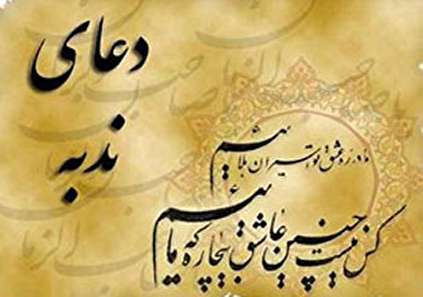 دعای
ندبه
ما در ره عشق تو اسیران بلائیم
کس نیست چنین عاشق بیچاره که مائیم